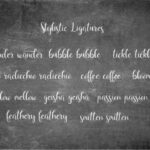 Stylistic Ligatures
wander bubble bubble tickle tickle
radicchio radicchio coffee coffee bloom
mellow geisha geisha passion passion
feathery feathery smitten smitten